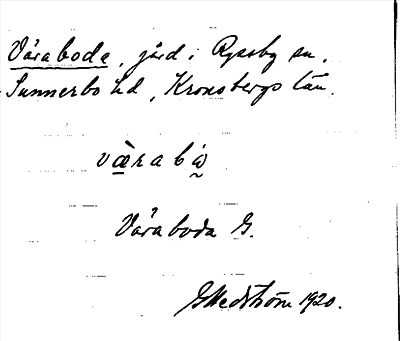 Vårabode, gård i Ryssby sn,
Sunnerbo hd, Kronobergs län.
væ̀rabå̀
Våraboda G.
GHedström 1920.